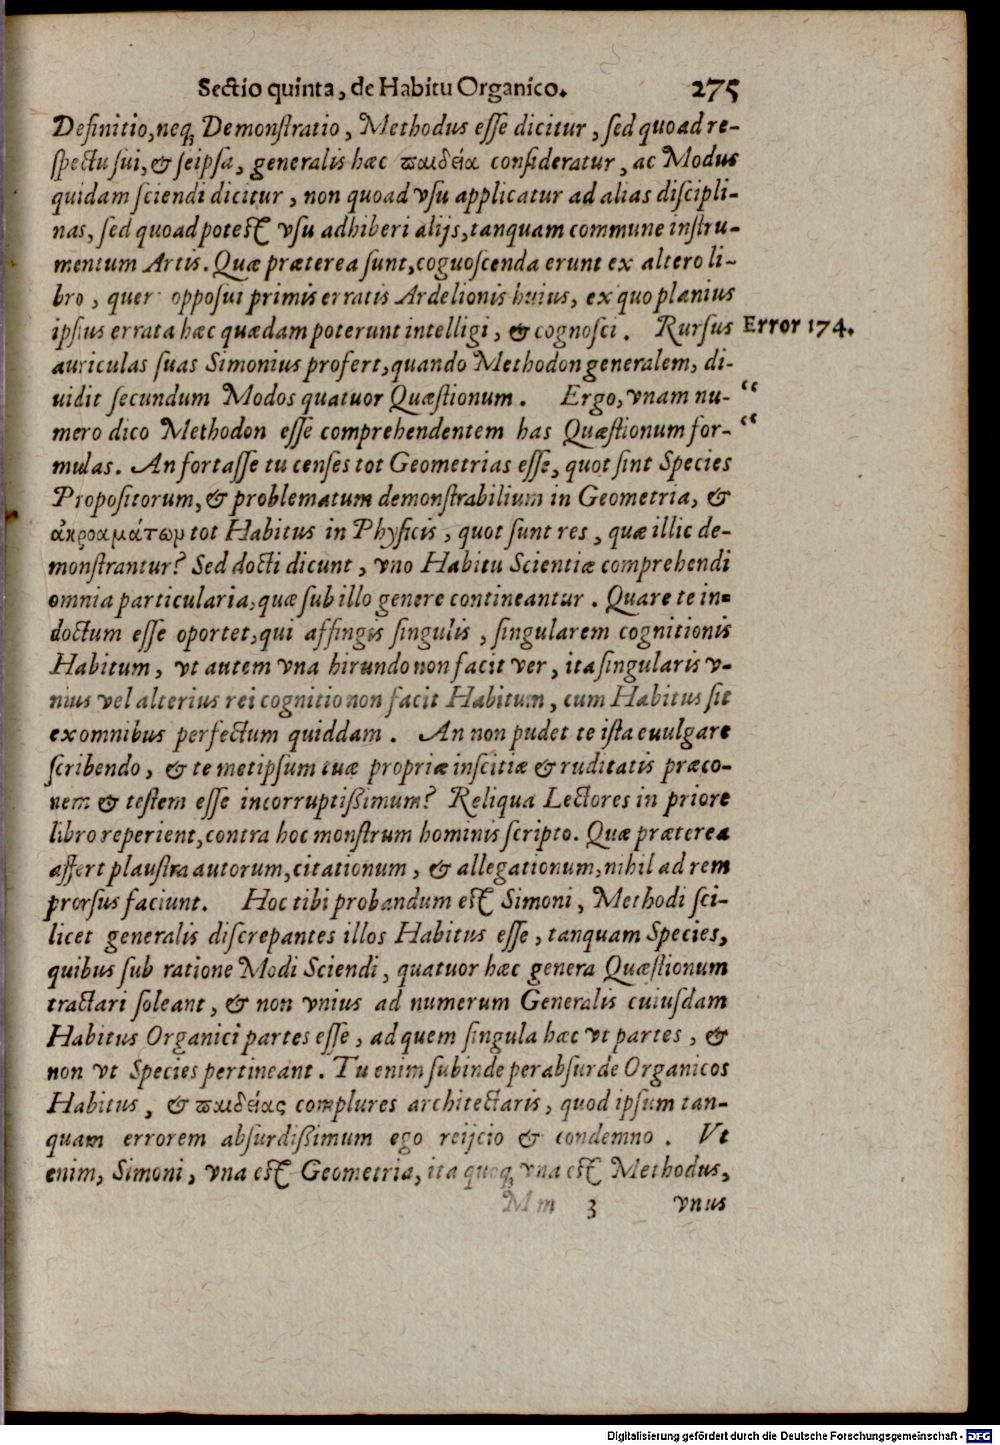 Sectio quinta, de Habitu Organico. 275
Definitio, neq; Demonstratio, Methodus esse dicitur, sed quoad re-
spectu sui, & seipsa, generalis hæc παιδεία consideratur, ac Modus
quidam sciendi dicitur, non quoad vsu applicatur ad alias discipli-
nas, sed quoad potest vsu adhiberi alijs, tanquam commune instru-
mentum Artis. Quæ præterea sunt, coguoscenda erunt ex altero li-
bro, quem opposui primis erratis Ardelionis huius, ex quo planius
ipsius errata hæc quædam poterunt intelligi, & cognosci. Rursus Error 174.
auriculas suas Simonius profert, quando Methodon generalem, di-
uidit secundum Modos quatuor Quæstionum. Ergo, vnam nu- “
mero dico Methodon esse comprehendentem has Quæstionum for- “
mulas. An fortasse tu censes tot Geometrias esse, quot sint Species
Propositorum, & problematum demonstrabilium in Geometria, &
ἀκροαμάτωμ tot Habitus in Physicis, quot sunt res, quæ illic de-
monstrantur? Sed docti dicunt, vno Habitu Scientiæ comprehendi
omnia particularia, quæ sub illo genere contineantur. Quare te in-
doctum esse oportet, qui affingis singulis, singularem cognitionis
Habitum, vt autem vna hirundo non facit ver, ita singularis v-
nius vel alterius rei cognitio non facit Habitum, cum Habitus sit
ex omnibus perfectum quiddam. An non pudet te ista euulgare
scribendo, & temetipsum tuæ propriæ inscitiæ & ruditatis præco-
nem & testem esse incorruptißimum? Reliqua Lectores in priore
libro reperient, contra hoc monstrum hominis scripto. Quæ præterea
affert plaustra autorum, citationum, & allegationum, nihil ad rem
prorsus faciunt. Hoc tibi probandum est Simoni, Methodi sci-
licet generalis discrepantes illos Habitus esse, tanquam Species,
quibus sub ratione Modi Sciendi, quatuor hæc genera Quæstionum
tractari soleant, & non vnius ad numerum Generalis cuiusdam
Habitus Organici partes esse, ad quem singula hæc vt partes, &
non vt Species pertineant. Tu enim subinde perabsurde Organicos
Habitus, & παιδείας complures architectaris, quod ipsum tan-
quam errorem absurdißimum ego reijcio & condemno. Vt
enim, Simoni, vna est Geometria, ita quoq; vna est Methodus,
Mm 3 vnus
Digitalisierung gefördert durch die Deutsche Forschungsgemeinschaft - DFG